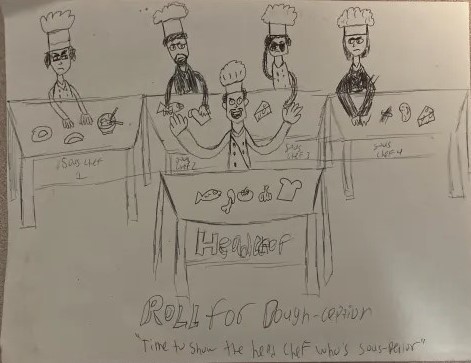 Sous Chef
1
Sous
Chef 2
Sous
Chef 3
Sous
Chef 4
Head Chef
Roll for Dough-ception
"Time to show the head chef who's sous-perior"